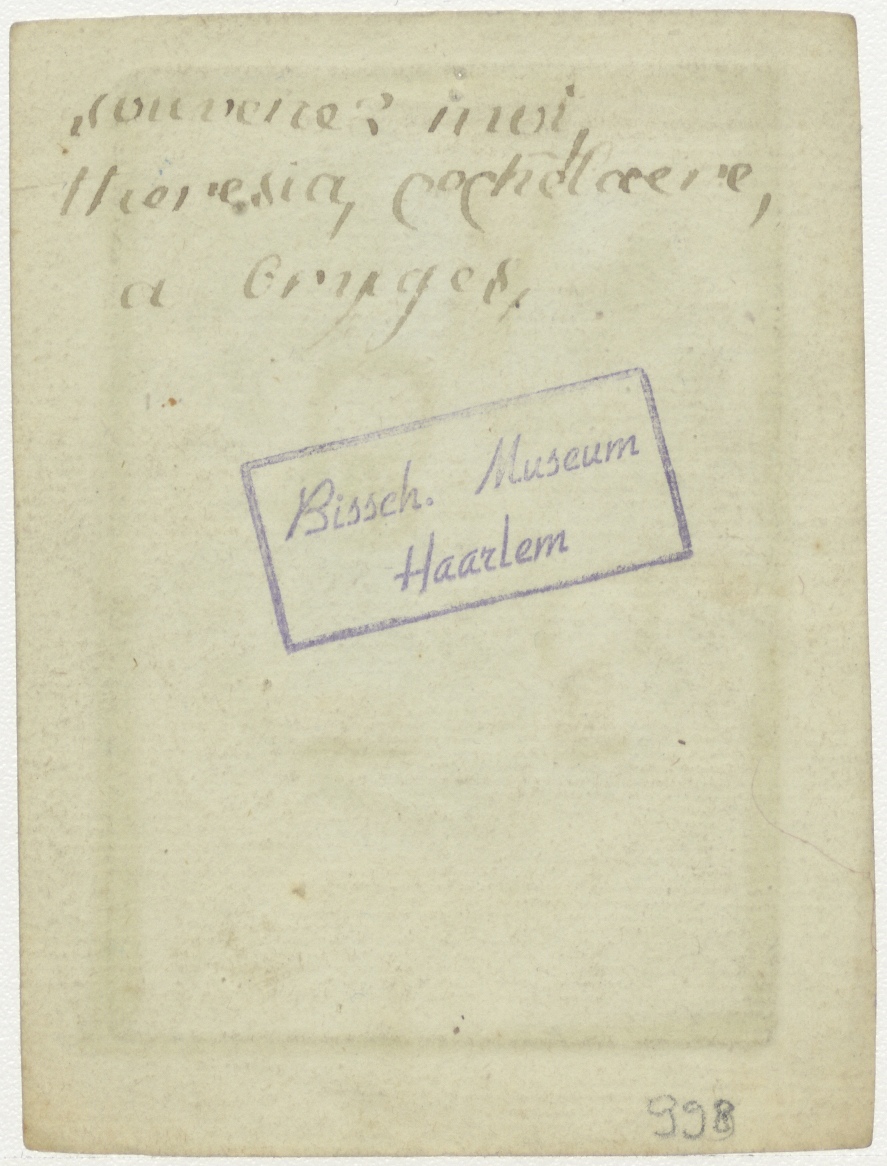 souvenez moi,
Theresia,
a bruges,
Bissch. Museum
Haarlem
998